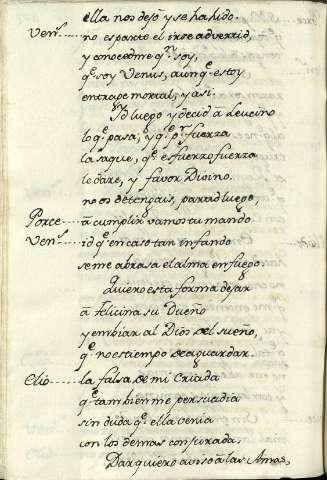 ella nos dejò, y se ha hido.
Venˢ. ..... no es parte el irse advertid,
y conocedme qⁿ. soy,
qᵉ. soy Venus, aunqᵉ. estoy
en trage mortal, y asi.
Yd luego, y decid à Leucino
lo qᵉ. pasa, y qᵉ. pʳ. fuerza
la saque, qᵉ. esfuerzo fuerza
le dare, y favor Divino.
no os detengais, partid luego,
Porce ..... à cumplir vamos tu mando
Venˢ. ..... id qᵉ. en caso tan infando
se me abrasa el alma en fuego.
Quiero esta forma dejar
à Felicina su Dueño
y embiar al Dios del sueño,
qᵉ. no es tiempo de aguardar.
Clio ..... la falsa de mi Criada
qᵉ. tambien me persuadia
sin duda qᵉ. ella venia
con los demas conjurada.
Dar quiero aviso à las Amas,